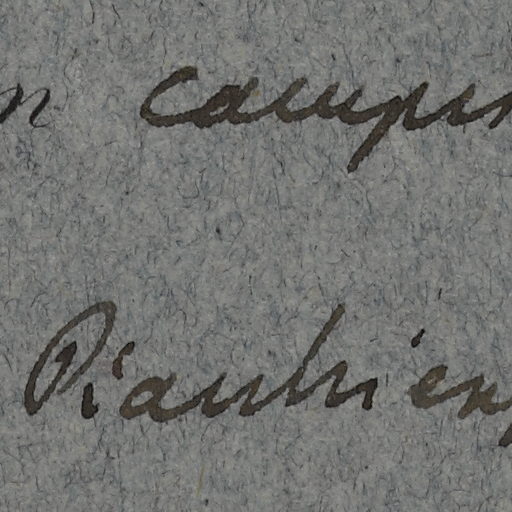 n campi
Piauhien